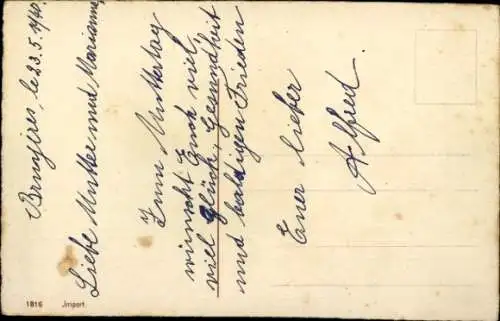 Bruyères, le 23.5.1940.
Liebe Mutter und Marianne,
Zum Muttertag
wünscht Euch viel,
viel Glück, Gesundheit
und baldigen Frieden
Euer lieber
Alfred.
1816 Import.